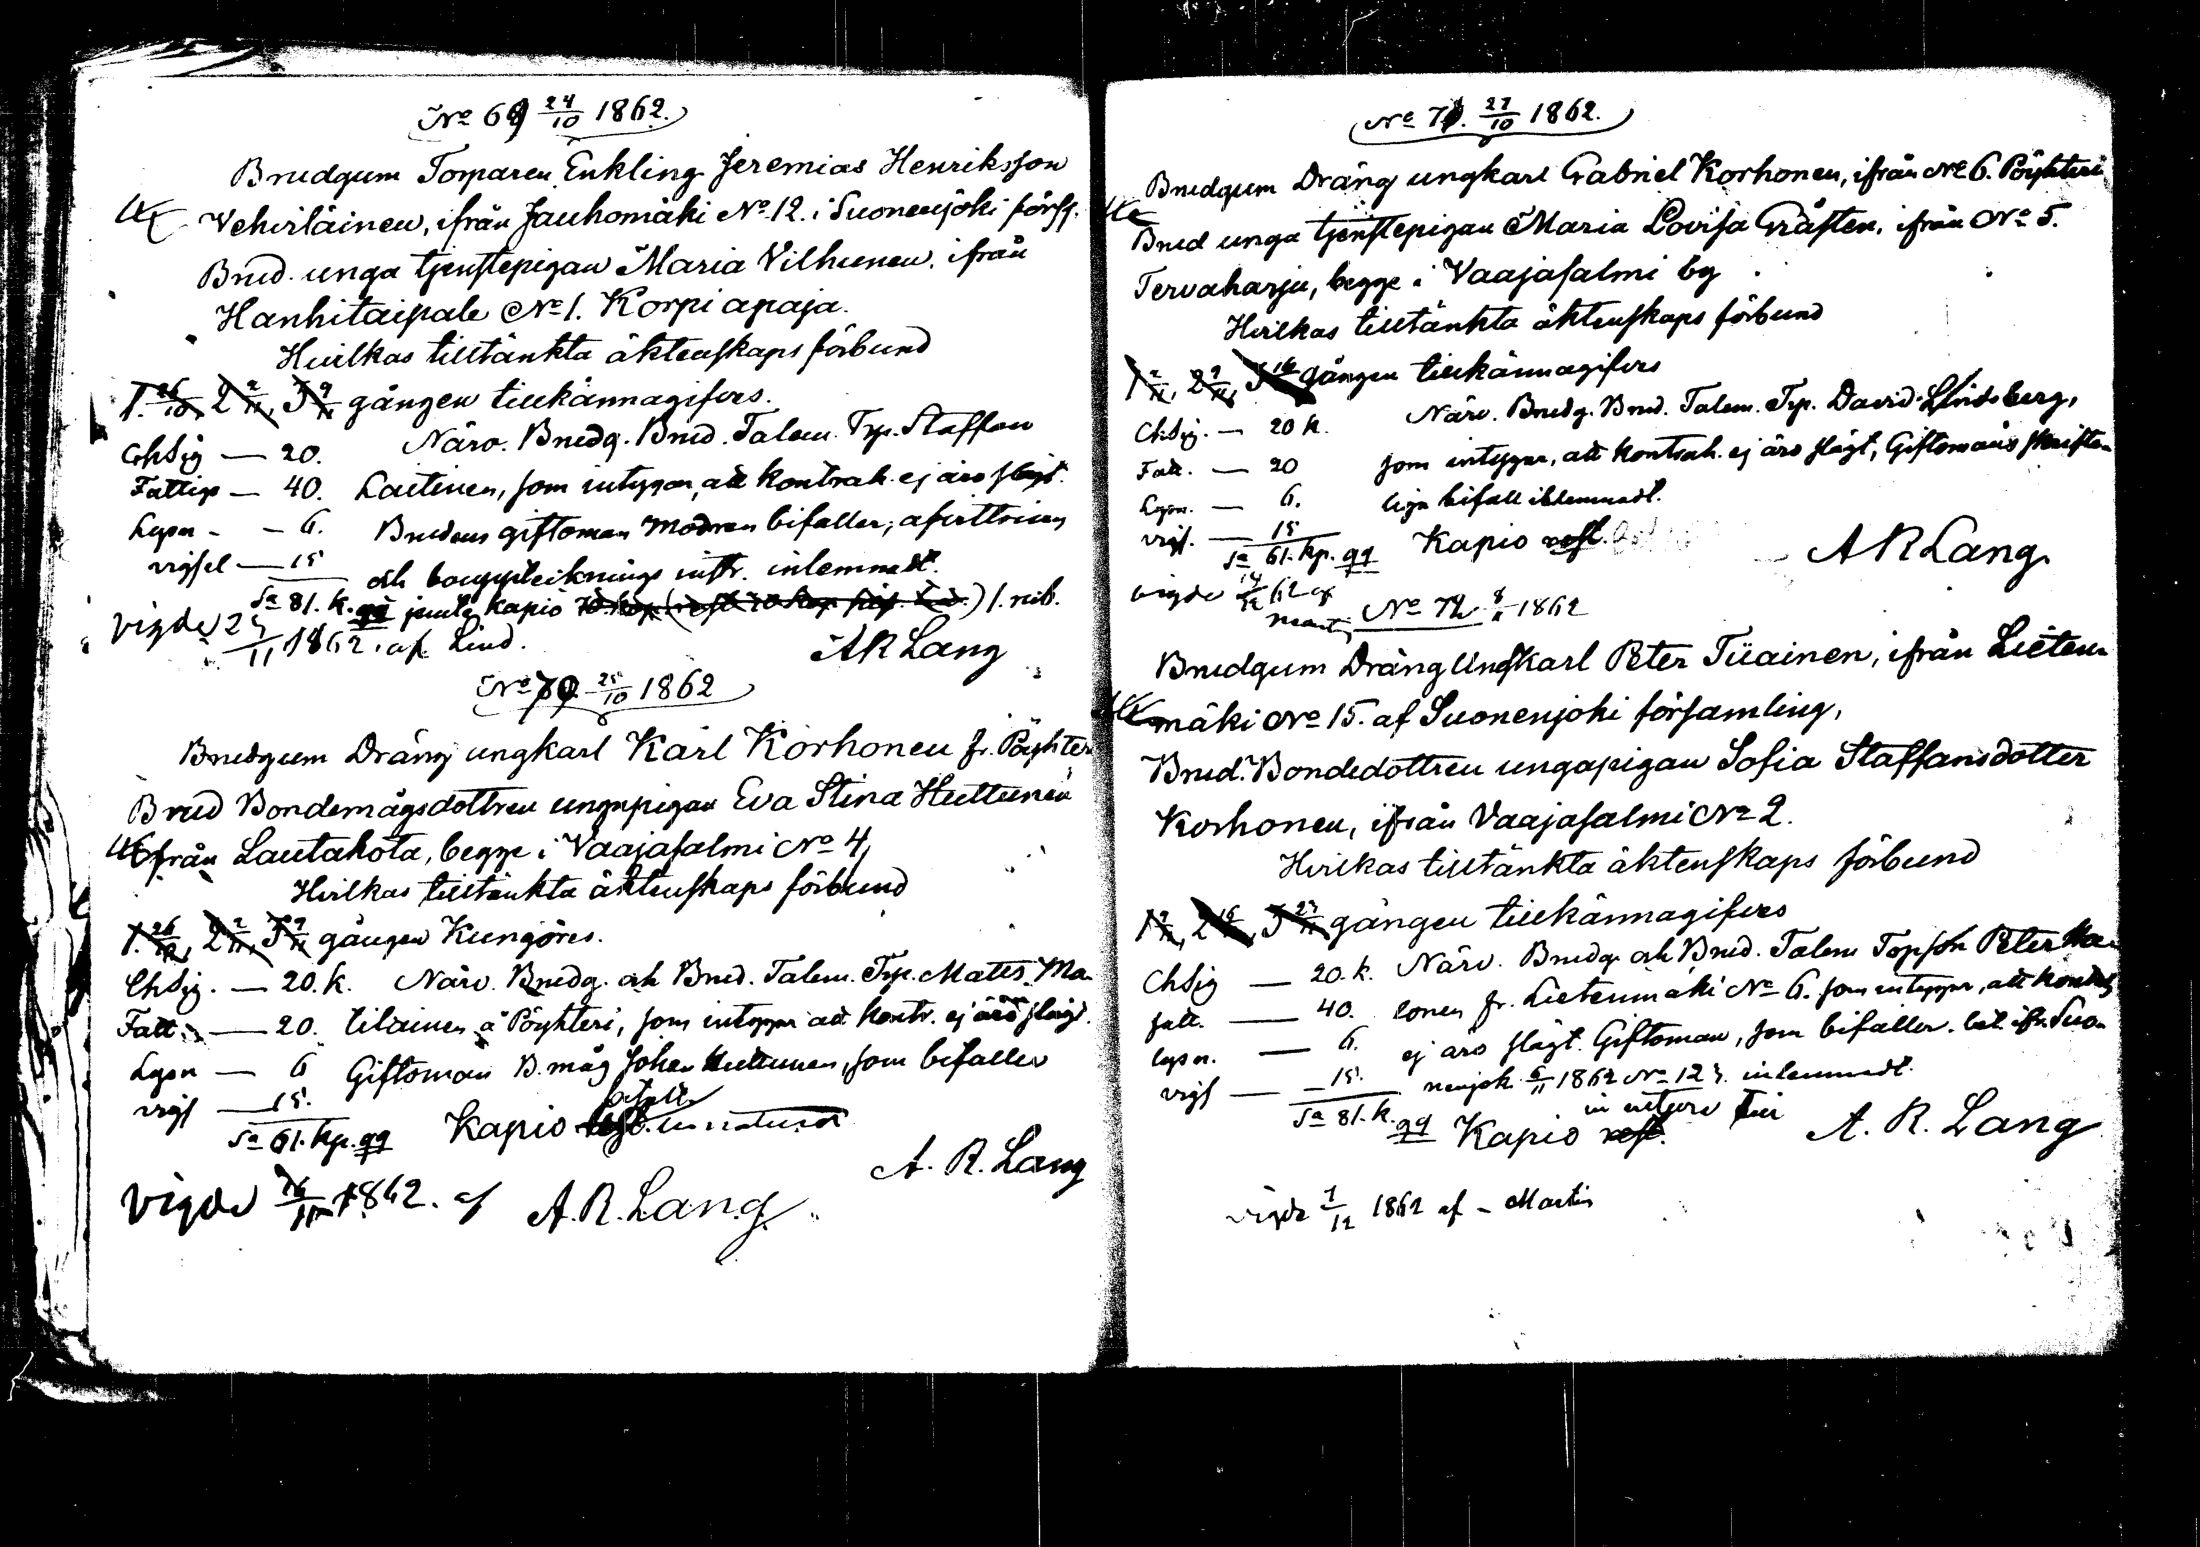 No 69 24/10 1862.
Brudgum Torparen Enkling Jeremias Henriksson
Vehviläinen, ifrån Jauhomäki No. 12. i Suonenjoki förs.
Brud. unga tjenstepigan Maria Vilhunen. ifrån
Hanhitaipale No 1. Korpi apaja.
Hvilkas tilltänkta äktenskaps förbund
1. 26/10, 2 2/11, 3 9/11 gången tillkännagifves.
Chsig — 20. Närv. Brudg. Brud. Talem. Trp. Staffan
Fattig — 40. Laitinen, som intygar, att kontrah. ej äro slägt.
Lysn - - 6. Brudens giftoman Modren bifaller, afvittrings
vigsel — 15 och bouppteknings instr. inlemnadt.
Sa 81. k. qq Kapio 1. rub.
vigde 23/11 1862. af Lind.
A R Lang
No 70 25/10 1862
Brudgum Dräng ungkarl Karl Korhonen fr. Pöyhteri
Brud Bondemågsdottren ungapigan Eva Stina Huttunen
från Lautakota, begge i Vaajasalmi No 4,
Hvilkas tilltänkta äktenskaps förbund
1. 26/10, 2 2/11, 3 9/11 gången Kungöres.
Chsig. — 20. k. Närv. Brudg. och Brud. Talem. Trp. Matts. Ma-
Fatt. — 20. tilainen å Pöyhteri, som intygar att kontr. ej äro slägt.
Lysn — 6 Giftoman B. måg Johan Huttunen, som bifaller
vigs — 15.
Sa 61. kp. qq Kapio in natura
A. R. Lang
vigde 16/11 1862. af A. R. Lang
No 71. 27/10 1862.
Brudgum Dräng ungkarl Gabriel Korhonen, ifrån No 6. Pöyhteri
Brud unga tjenstepigan Maria Lovisa Gråsten, ifrån No 5.
Tervaharju, begge i Vaajasalmi by
Hvilkas tilltänkta äktenskaps förbund
1 2/11, 2 9/11, 3 16 gången tillkännagifves
Chsig. — 20 k. Närv. Brudg. Brud. Talem. Trp. David Lindsberg,
Fatt. — 20 som intygar, att kontrah. ej äro slägt, Giftomans skrift-
Lysn. — 6. liga bifall inlemnadt.
vigs. — 15
Sa 61. kp. qq Kapio rest.
A R Lang
vigde 14/12 62 af
Martin
No 72 8/11 1862
Brudgum Dräng Ungkarl Peter Tiiainen, ifrån Lieten-
mäki No 15. af Suonenjoki församling,
Brud. Bondedottren ungapigan Sofia Staffansdotter
Korhonen, ifrån Vaajasalmi No 2.
Hvilkas tilltänkta äktenskaps förbund
1 9/11, 2 16, 3 23/11 gången tillkännagifves
Chsig — 20. k. Närv. Brudg. och Brud. Talem Peter Ka-
fatt. — 40. fr. Lietenmäki No 6. som intygar, att kontrah
lysn. — 6. ej äro slägt. Giftoman, som bifaller. ifr. Suo-
vigs — 15. nenjok. 6/11 1862 No 123. inlemnadt.
Sa 81. k. qq Kapio rest.
A. R. Lang
vigde 7/12 1862 af - Martin